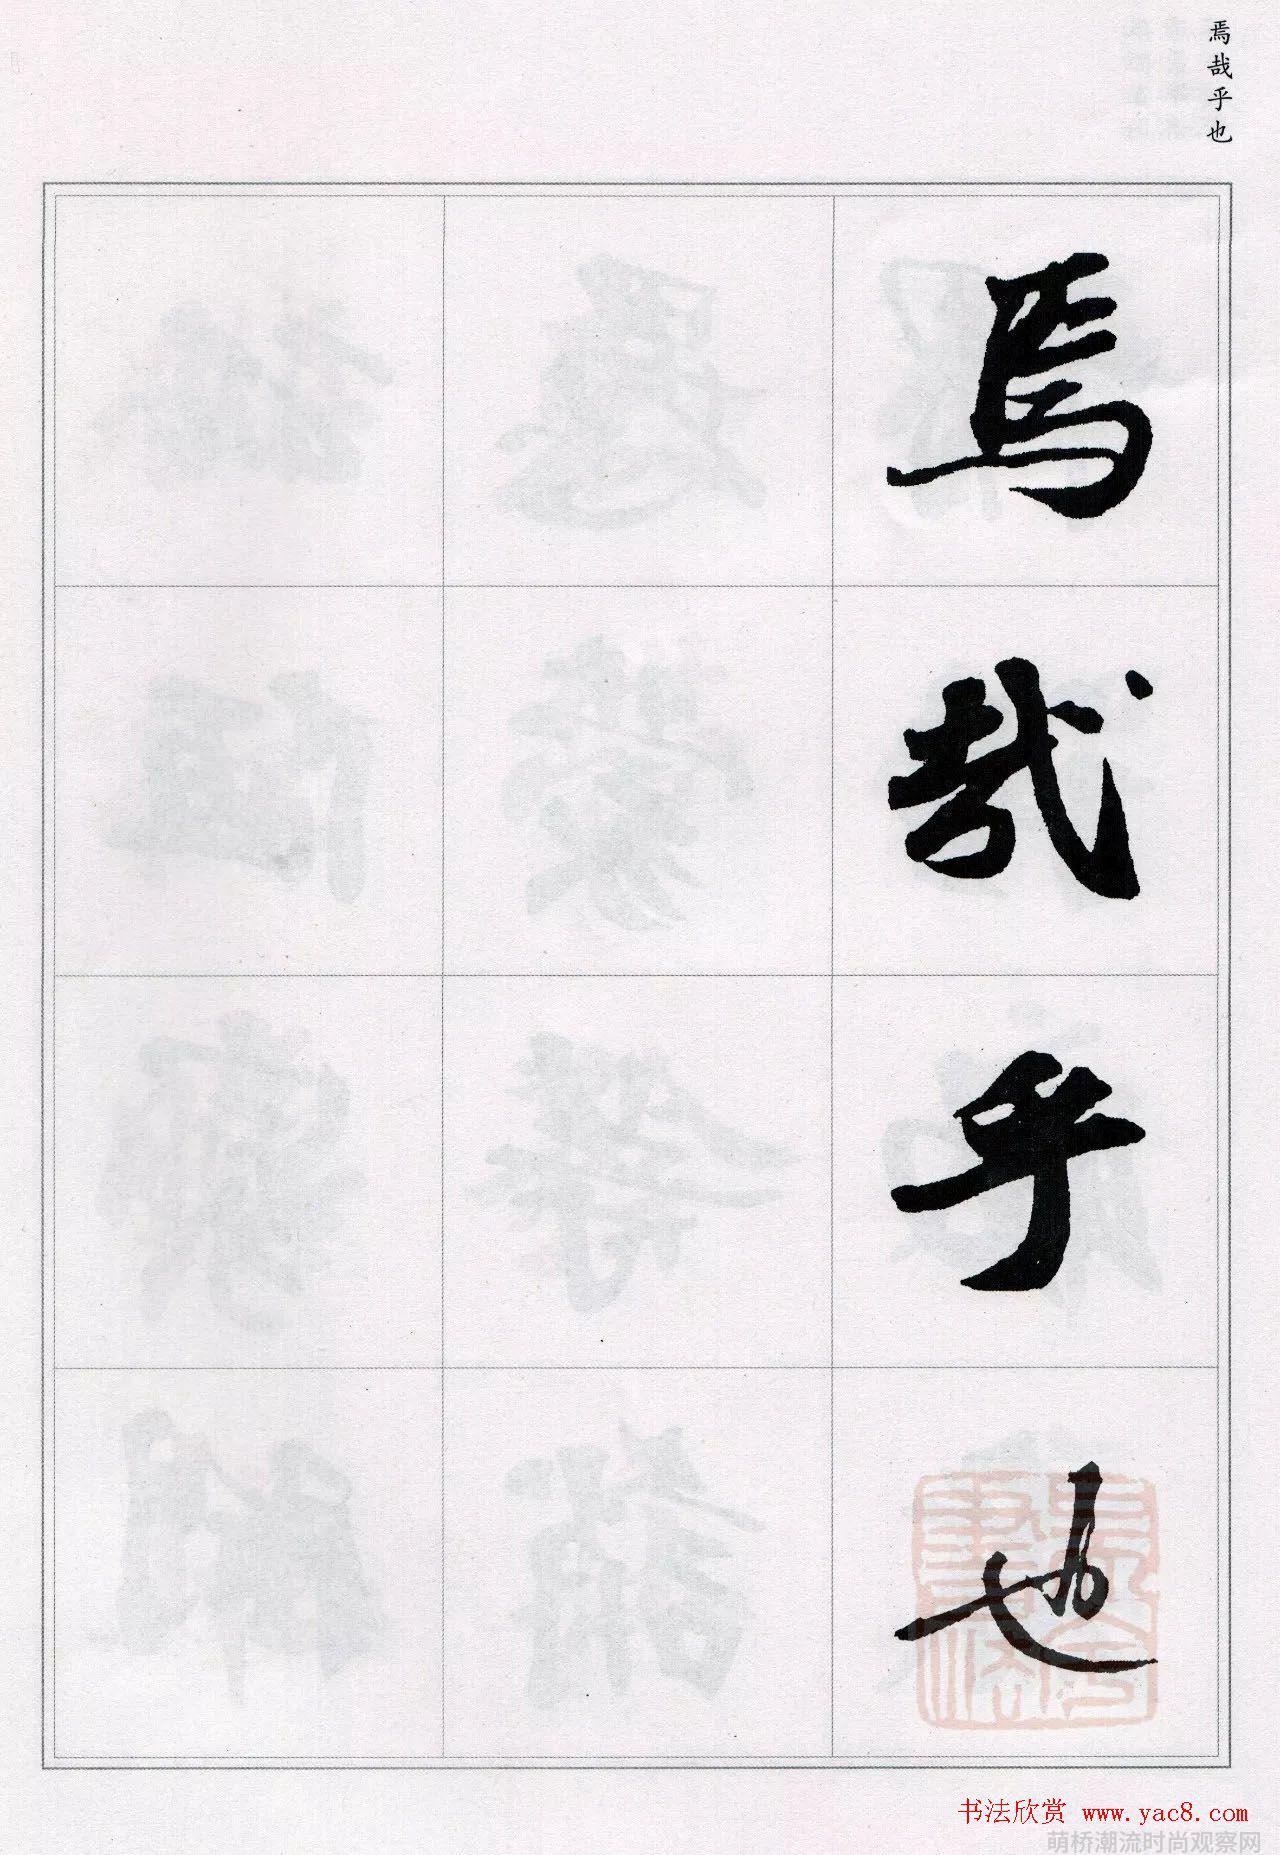 焉哉乎也
焉
哉
乎
也
书法欣赏 www.yac8.com
萌桥潮流时尚观察网